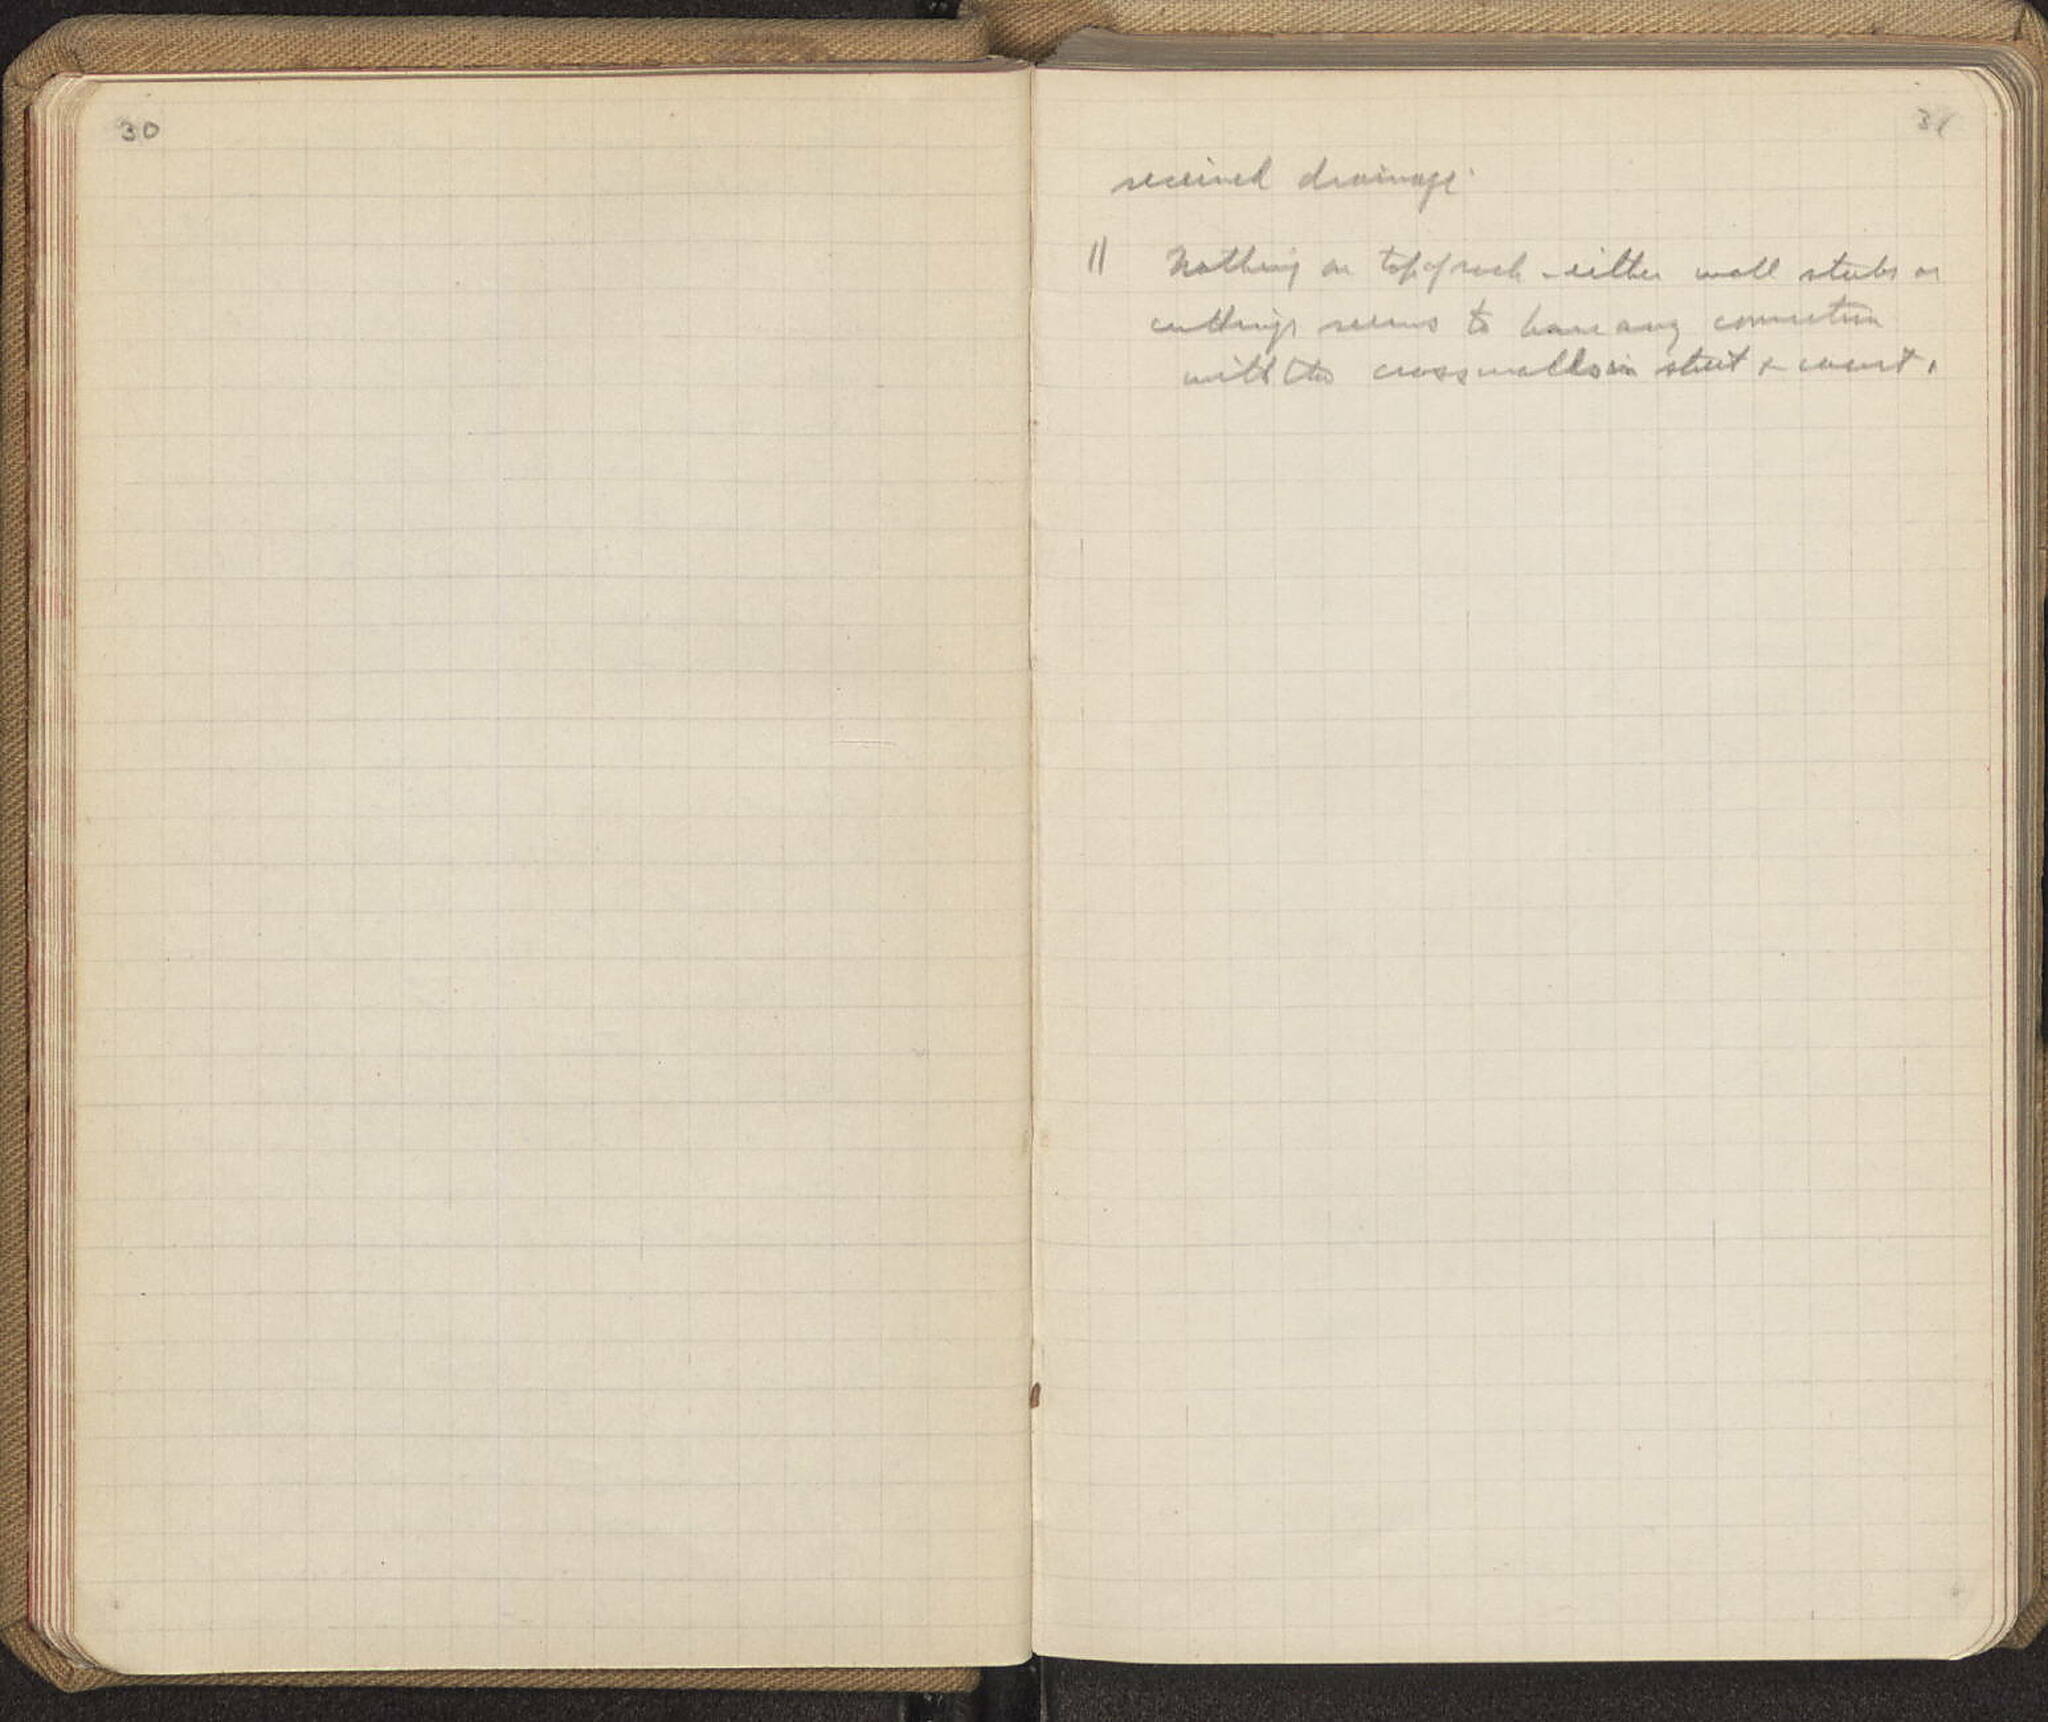 30
31
received drainage.
11 Nothing on top of rock - either wall stubs or
cuttings seems to have any connection
with the crosswalls in street & court.